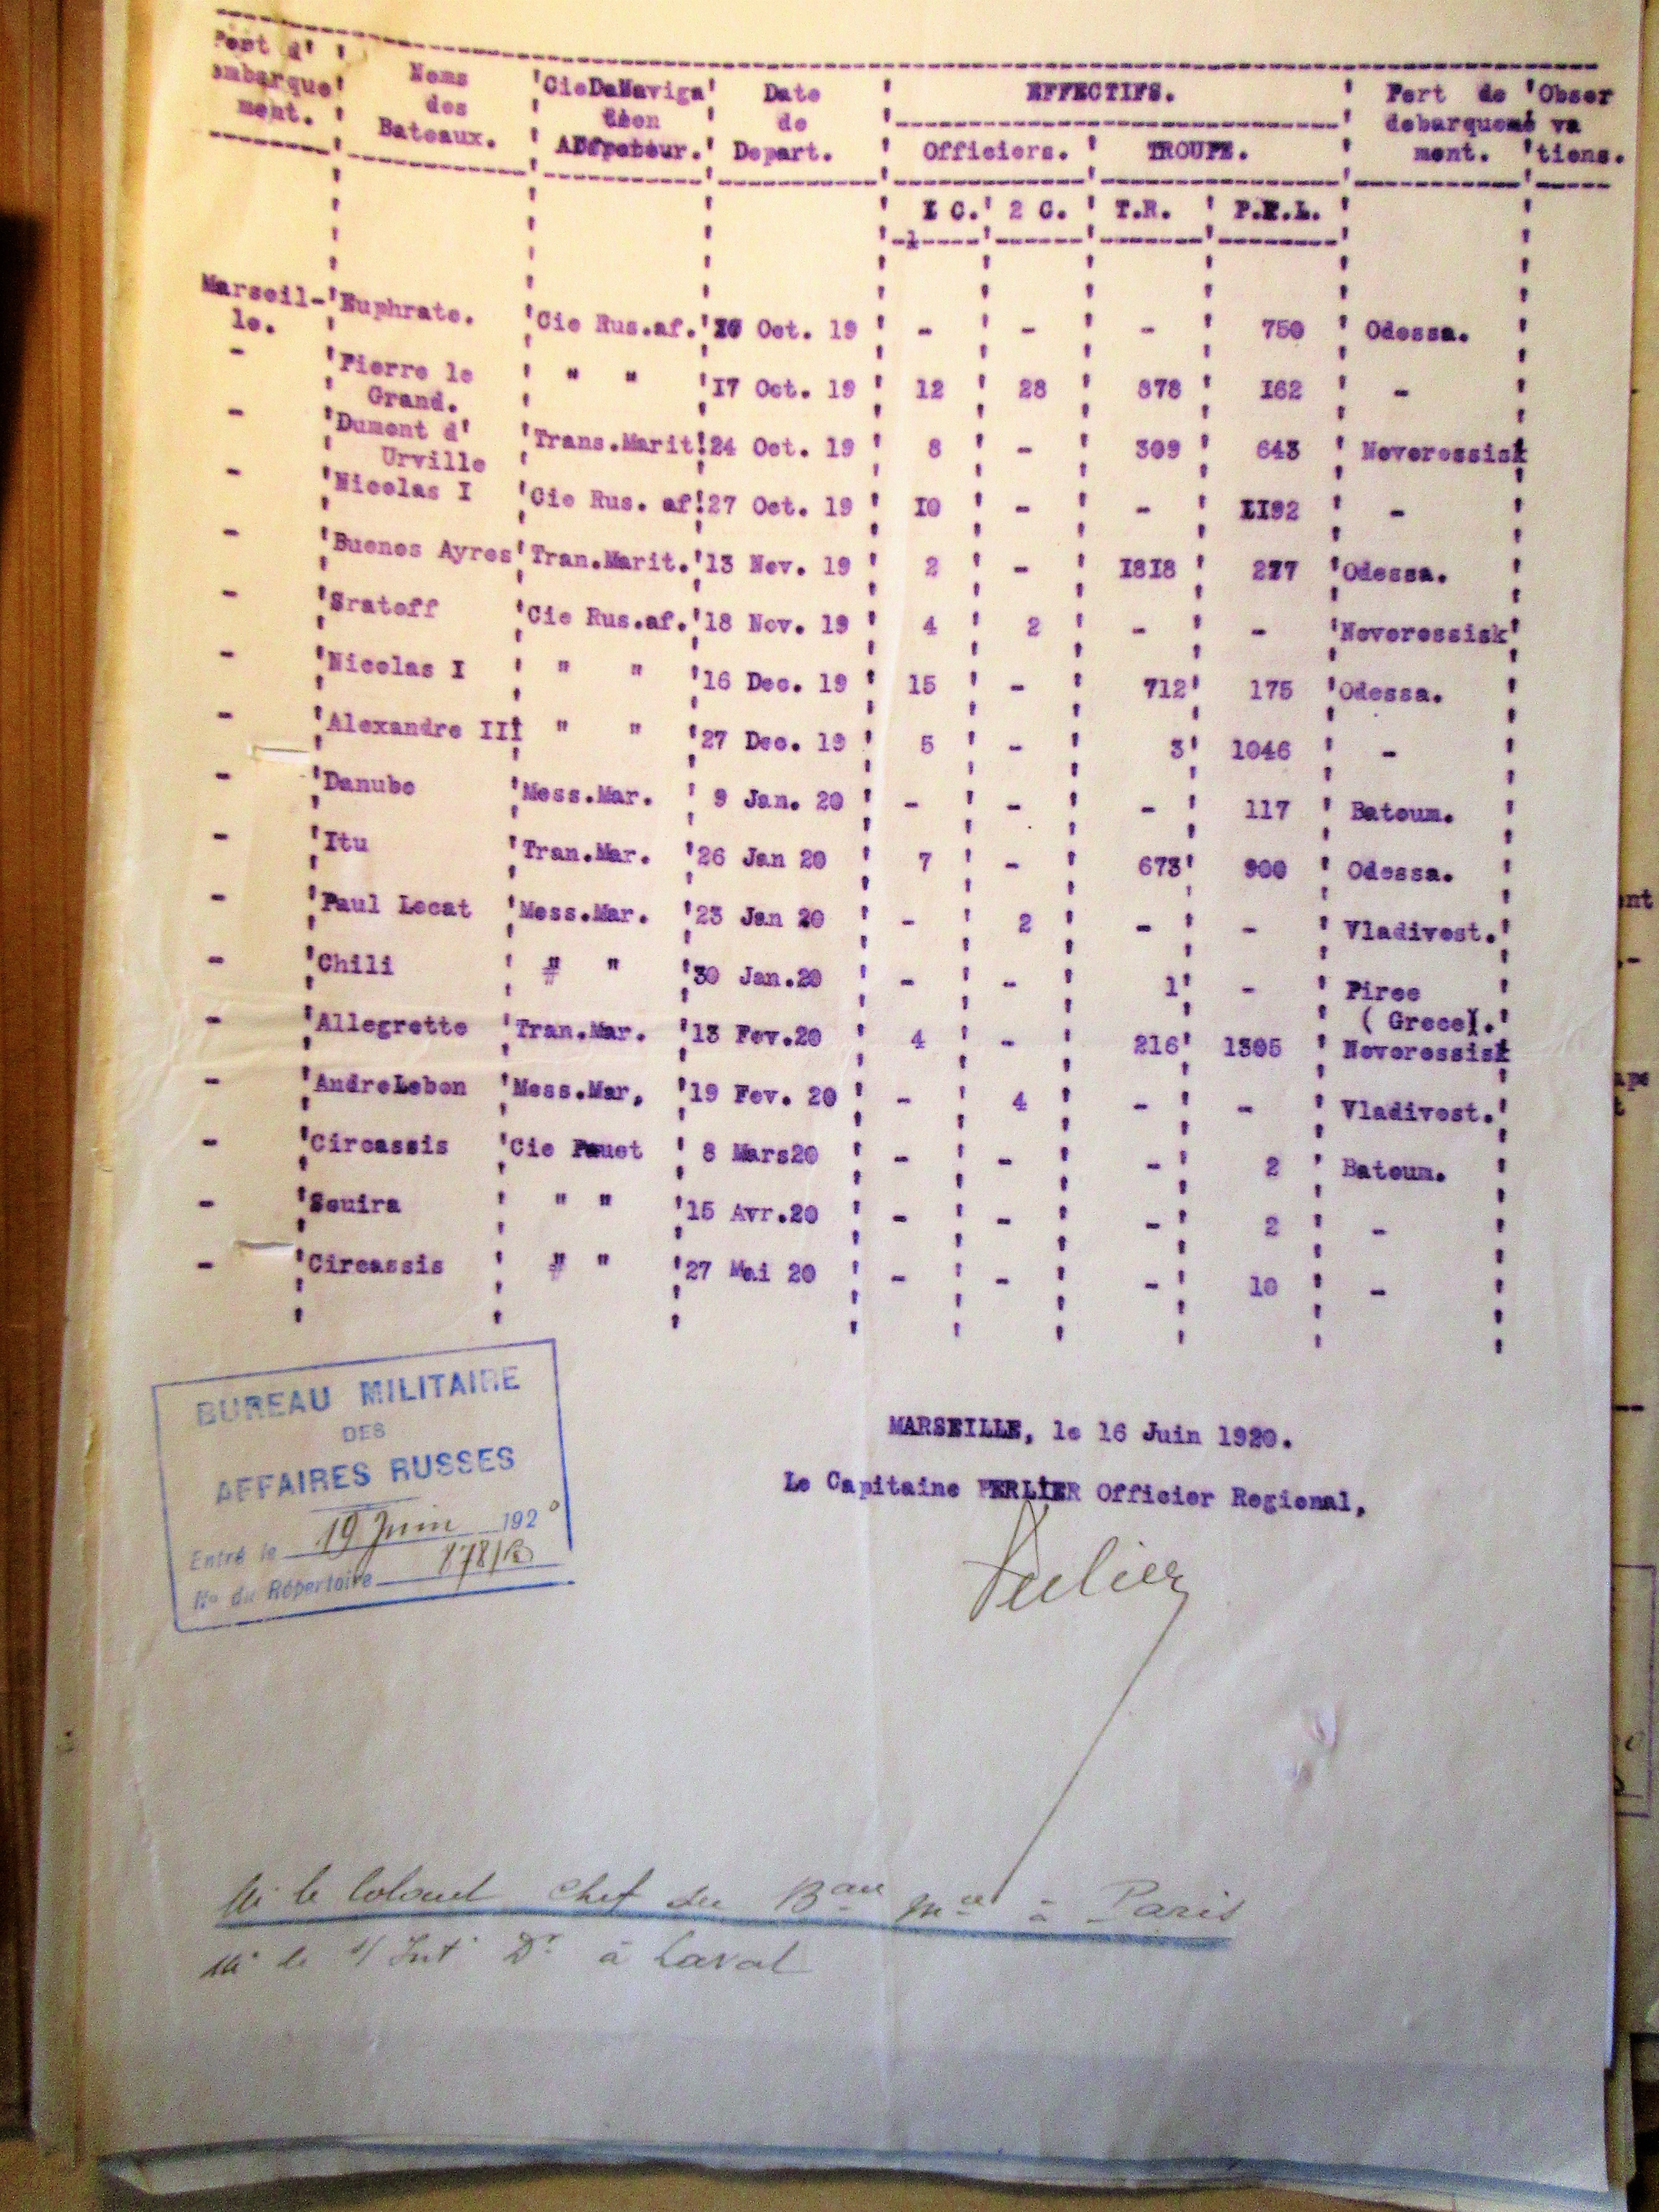 Port d' Noms CieDeNaviga Date EFFECTIFS. Port de Obser
embarque des de debarqueme va
ment. Bateaux. Depart. Officiers. TROUPE. ment. tions.
I C. 2 C. T.R. P.F.L.
Marseil- Euphrate. Cie Rus.af. Oct. 19 - - - 750 Odessa.
le.
- Pierre le " " 17 Oct. 19 12 28 878 162 -
Grand.
- Dumont d' Trans.Marit. 24 Oct. 19 8 - 309 643 Novorossisk
Urville
- Nicolas I Cie Rus. af. 27 Oct. 19 10 - - 1192 -
- Buenos Ayres Tran.Marit. 13 Nov. 19 2 - 1818 277 Odessa.
- Sratoff Cie Rus.af. 18 Nov. 19 4 2 - - Novorossisk
- Nicolas I " " 16 Dec. 19 15 - 712 175 Odessa.
- Alexandre III " " 27 Dec. 19 5 - 3 1046 -
- Danube Mess.Mar. 9 Jan. 20 - - - 117 Batoum.
- Itu Tran.Mar. 26 Jan 20 7 - 673 900 Odessa.
- Paul Lecat Mess.Mar. 23 Jan 20 - 2 - - Vladivost.
- Chili " " 30 Jan.20 - - 1 - Piree
( Grece).
- Allegrette Tran.Mar. 13 Fev.20 4 - 216 1305 Novorossisk
- AndreLebon Mess.Mar, 19 Fev. 20 - 4 - - Vladivost.
- Circassis Cie Pauet 8 Mars20 - - - 2 Batoum.
- Souira " " 15 Avr.20 - - - 2 -
- Circassis " " 27 Mai 20 - - - 10 -
BUREAU MILITAIRE
DES
AFFAIRES RUSSES
Entré le 19 Juin 1920
No du Répertoire 878/B
MARSEILLE, le 16 Juin 1920.
Le Capitaine PERLIER Officier Regional,
Perlier
Mr le Colonel Chef du Beau Mre à Paris
Mr le s/ Int Dr à Laval